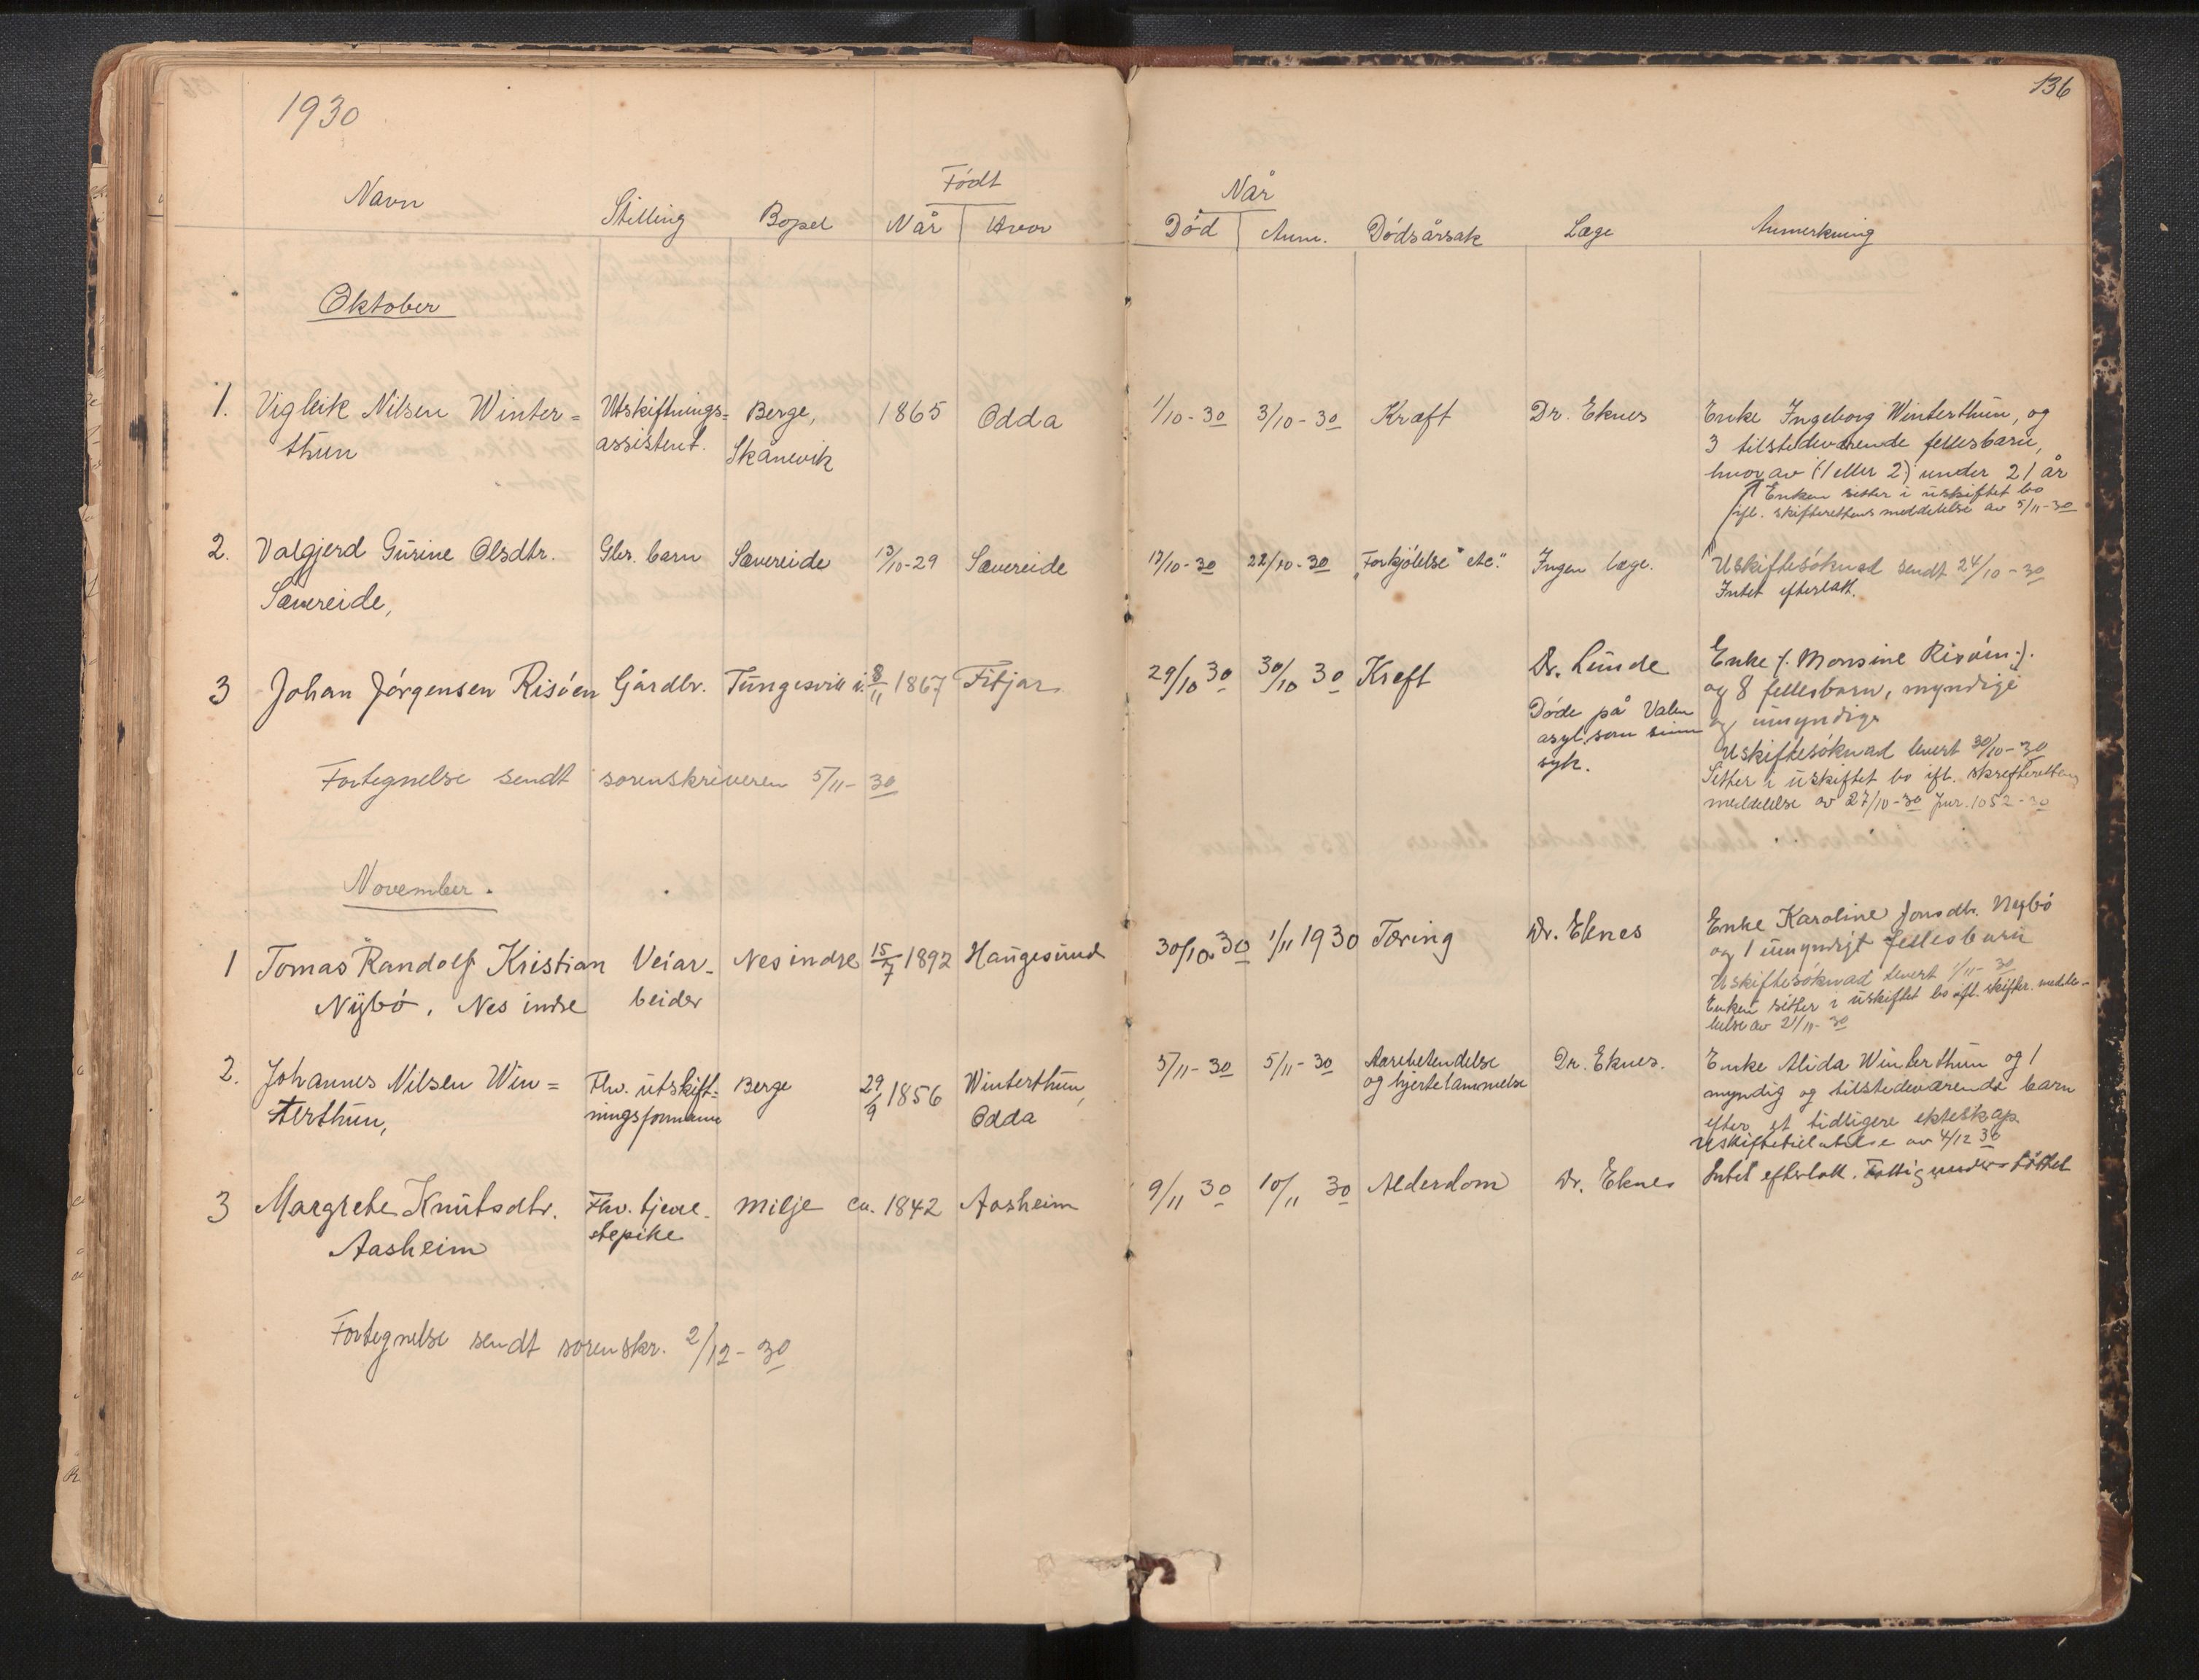 1930
136
Født
Når
Navn Stilling Bopel Når Hvor Død Anm. Dødsårsak Læge Anmerkning
Oktober
1. Vigleik Nilsen Winter= Utskiftnings= Berge, 1865 Odda 1/10-30 3/10-30 Kræft Dr. Eknes Enke Ingeborg Winterthun, og
thun assistent. Skånevik 3 tilstedeværende fellesbarn,
hvor av (1 eller 2) under 21 år
Enken sitter i uskiftet bo
ifl. skifterettens meddelelse av 5/11-30
2. Valgjerd Gurine Olsdtr. Gbr. barn Sævereide 13/10-29 Sævereide 17/10-30 22/10-30 "Forkjølelse etc." Ingen læge. Uskiftesøknad sendt 24/10-30
Sævereide, Intet efterlatt.
3 Johan Jørgensen Risøen Gårdbr. Tungesvik i. 8/11 1867 Fitjar 29/10 30 30/10 30 Kreft Dr. Lunde Enke /: Monsine Risøen :/.
og 8 fellesbarn, myndige
Døde på Valen og umyndige
asyl, som sinn
syk. Uskiftesøknad levert 30/10-30
Fortegnelse sendt sorenskriveren 5/11-30 Sitter i uskiftet bo ifl. skifterettens
meddelelse av 27/10-30 Jnr. 1052-30
November.
1 Tomas Randolf Kristian Veiar- Nes indre 15/7 1892 Haugesund 30/10.30 1/11 1930 Tæring Dr. Eknes Enke Karoline Jonsdtr. Nybø
Nybø, Nes indre beider og 1 umyndigt fellesbarn
Uskiftesøknad levert 1/11-30
Enken sitter i uskiftet bo ifl. skifter. medde-
lelse av 21/11-30
2. Johannes Nilsen Win= Fhv. utskift= Berge 29/9 1856 Winterthun, 5/11-30 5/11-30 Aarebetendelse Dr. Eknes. Enke Alida Winterthun og 1
terthun, ningsformann Odda og hjertelammelse myndig og tilstedeværende barn
efter et tidligere ekteskap.
Uskiftetillatelse av 4/12 30
3 Margrete Knutsdtr. Fhv. tjene- Milje ca. 1842 Aasheim 9/11 30 10/11 30 Alderdom Dr. Eknes Intet efterlatt. Fattigunderstøttet
Aasheim stepike
Fortegnelse sendt sorenskr. 2/12-30